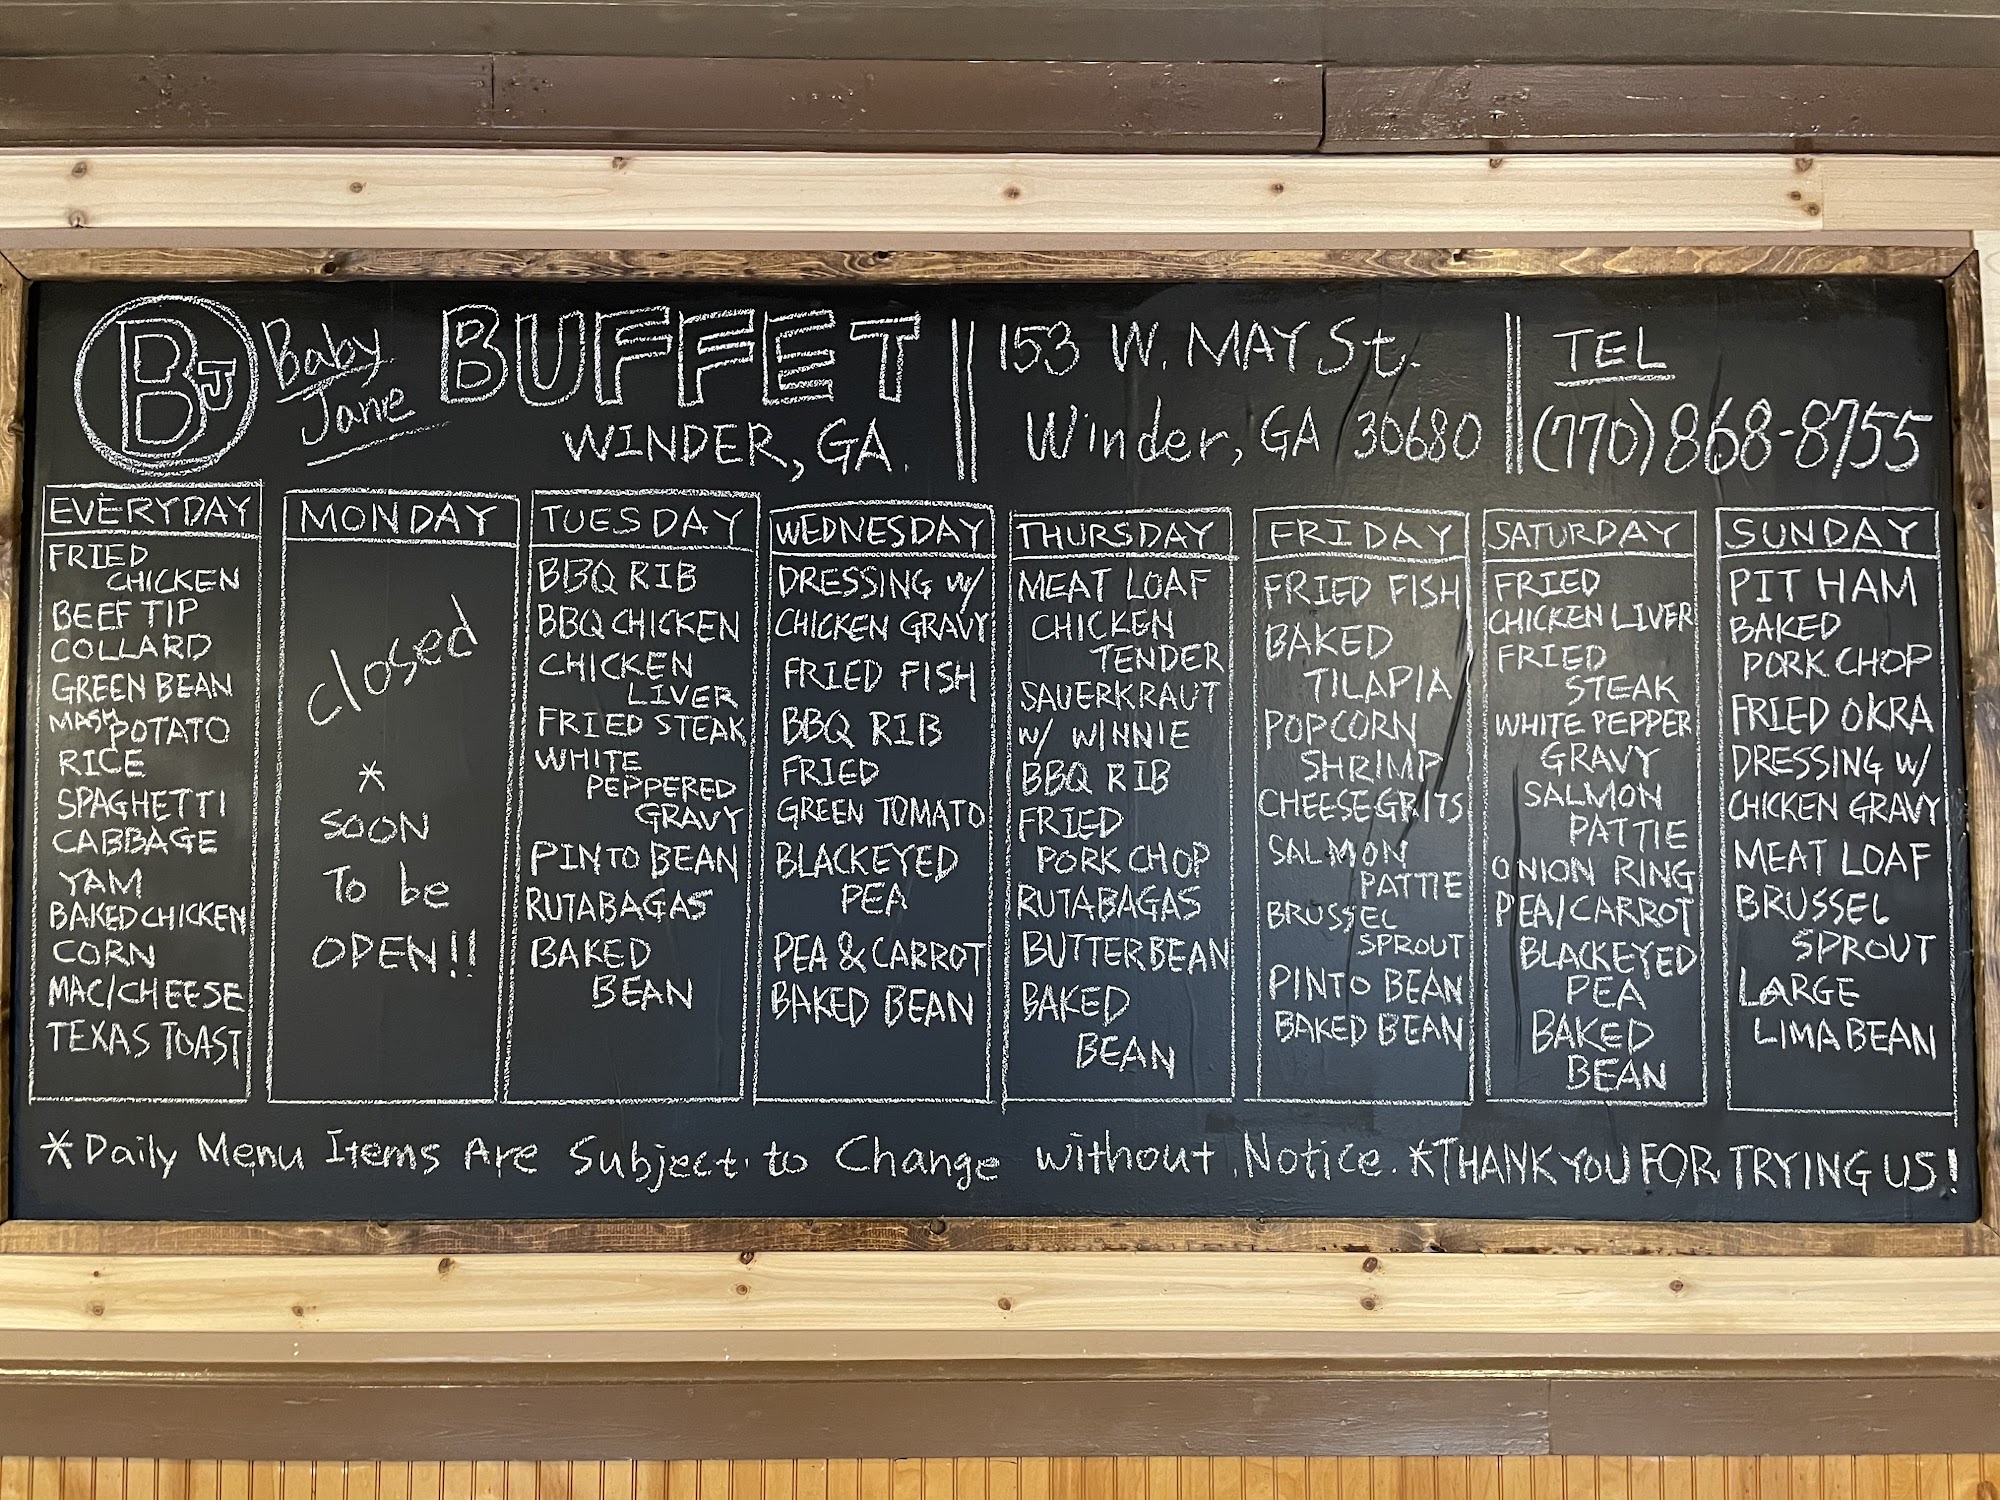 BJ
Baby
Jane
BUFFET
WINDER, GA.
153 W. MAY St.
Winder, GA 30680
TEL
(770) 868-8755
EVERYDAY
FRIED
CHICKEN
BEEF TIP
COLLARD
GREEN BEAN
MASH POTATO
RICE
SPAGHETTI
CABBAGE
YAM
BAKED CHICKEN
CORN
MAC/CHEESE
TEXAS TOAST
MONDAY
closed
*
SOON
To be
OPEN!!
TUESDAY
BBQ RIB
BBQ CHICKEN
CHICKEN
LIVER
FRIED STEAK
WHITE
PEPPERED
GRAVY
PINTO BEAN
RUTABAGAS
BAKED
BEAN
WEDNESDAY
DRESSING w/
CHICKEN GRAVY
FRIED FISH
BBQ RIB
FRIED
GREEN TOMATO
BLACKEYED
PEA
PEA & CARROT
BAKED BEAN
THURSDAY
MEAT LOAF
CHICKEN
TENDER
SAUERKRAUT
w/ WINNIE
BBQ RIB
FRIED
PORK CHOP
RUTABAGAS
BUTTERBEAN
BAKED
BEAN
FRIDAY
FRIED FISH
BAKED
TILAPIA
POPCORN
SHRIMP
CHEESEGRITS
SALMON
PATTIE
BRUSSEL
SPROUT
PINTO BEAN
BAKED BEAN
SATURDAY
FRIED
CHICKEN LIVER
FRIED
STEAK
WHITE PEPPER
GRAVY
SALMON
PATTIE
ONION RING
PEA/CARROT
BLACKEYED
PEA
BAKED
BEAN
SUNDAY
PIT HAM
BAKED
PORK CHOP
FRIED OKRA
DRESSING w/
CHICKEN GRAVY
MEAT LOAF
BRUSSEL
SPROUT
LARGE
LIMA BEAN
*Daily Menu Items Are Subject to Change without Notice. *THANK YOU FOR TRYING US!